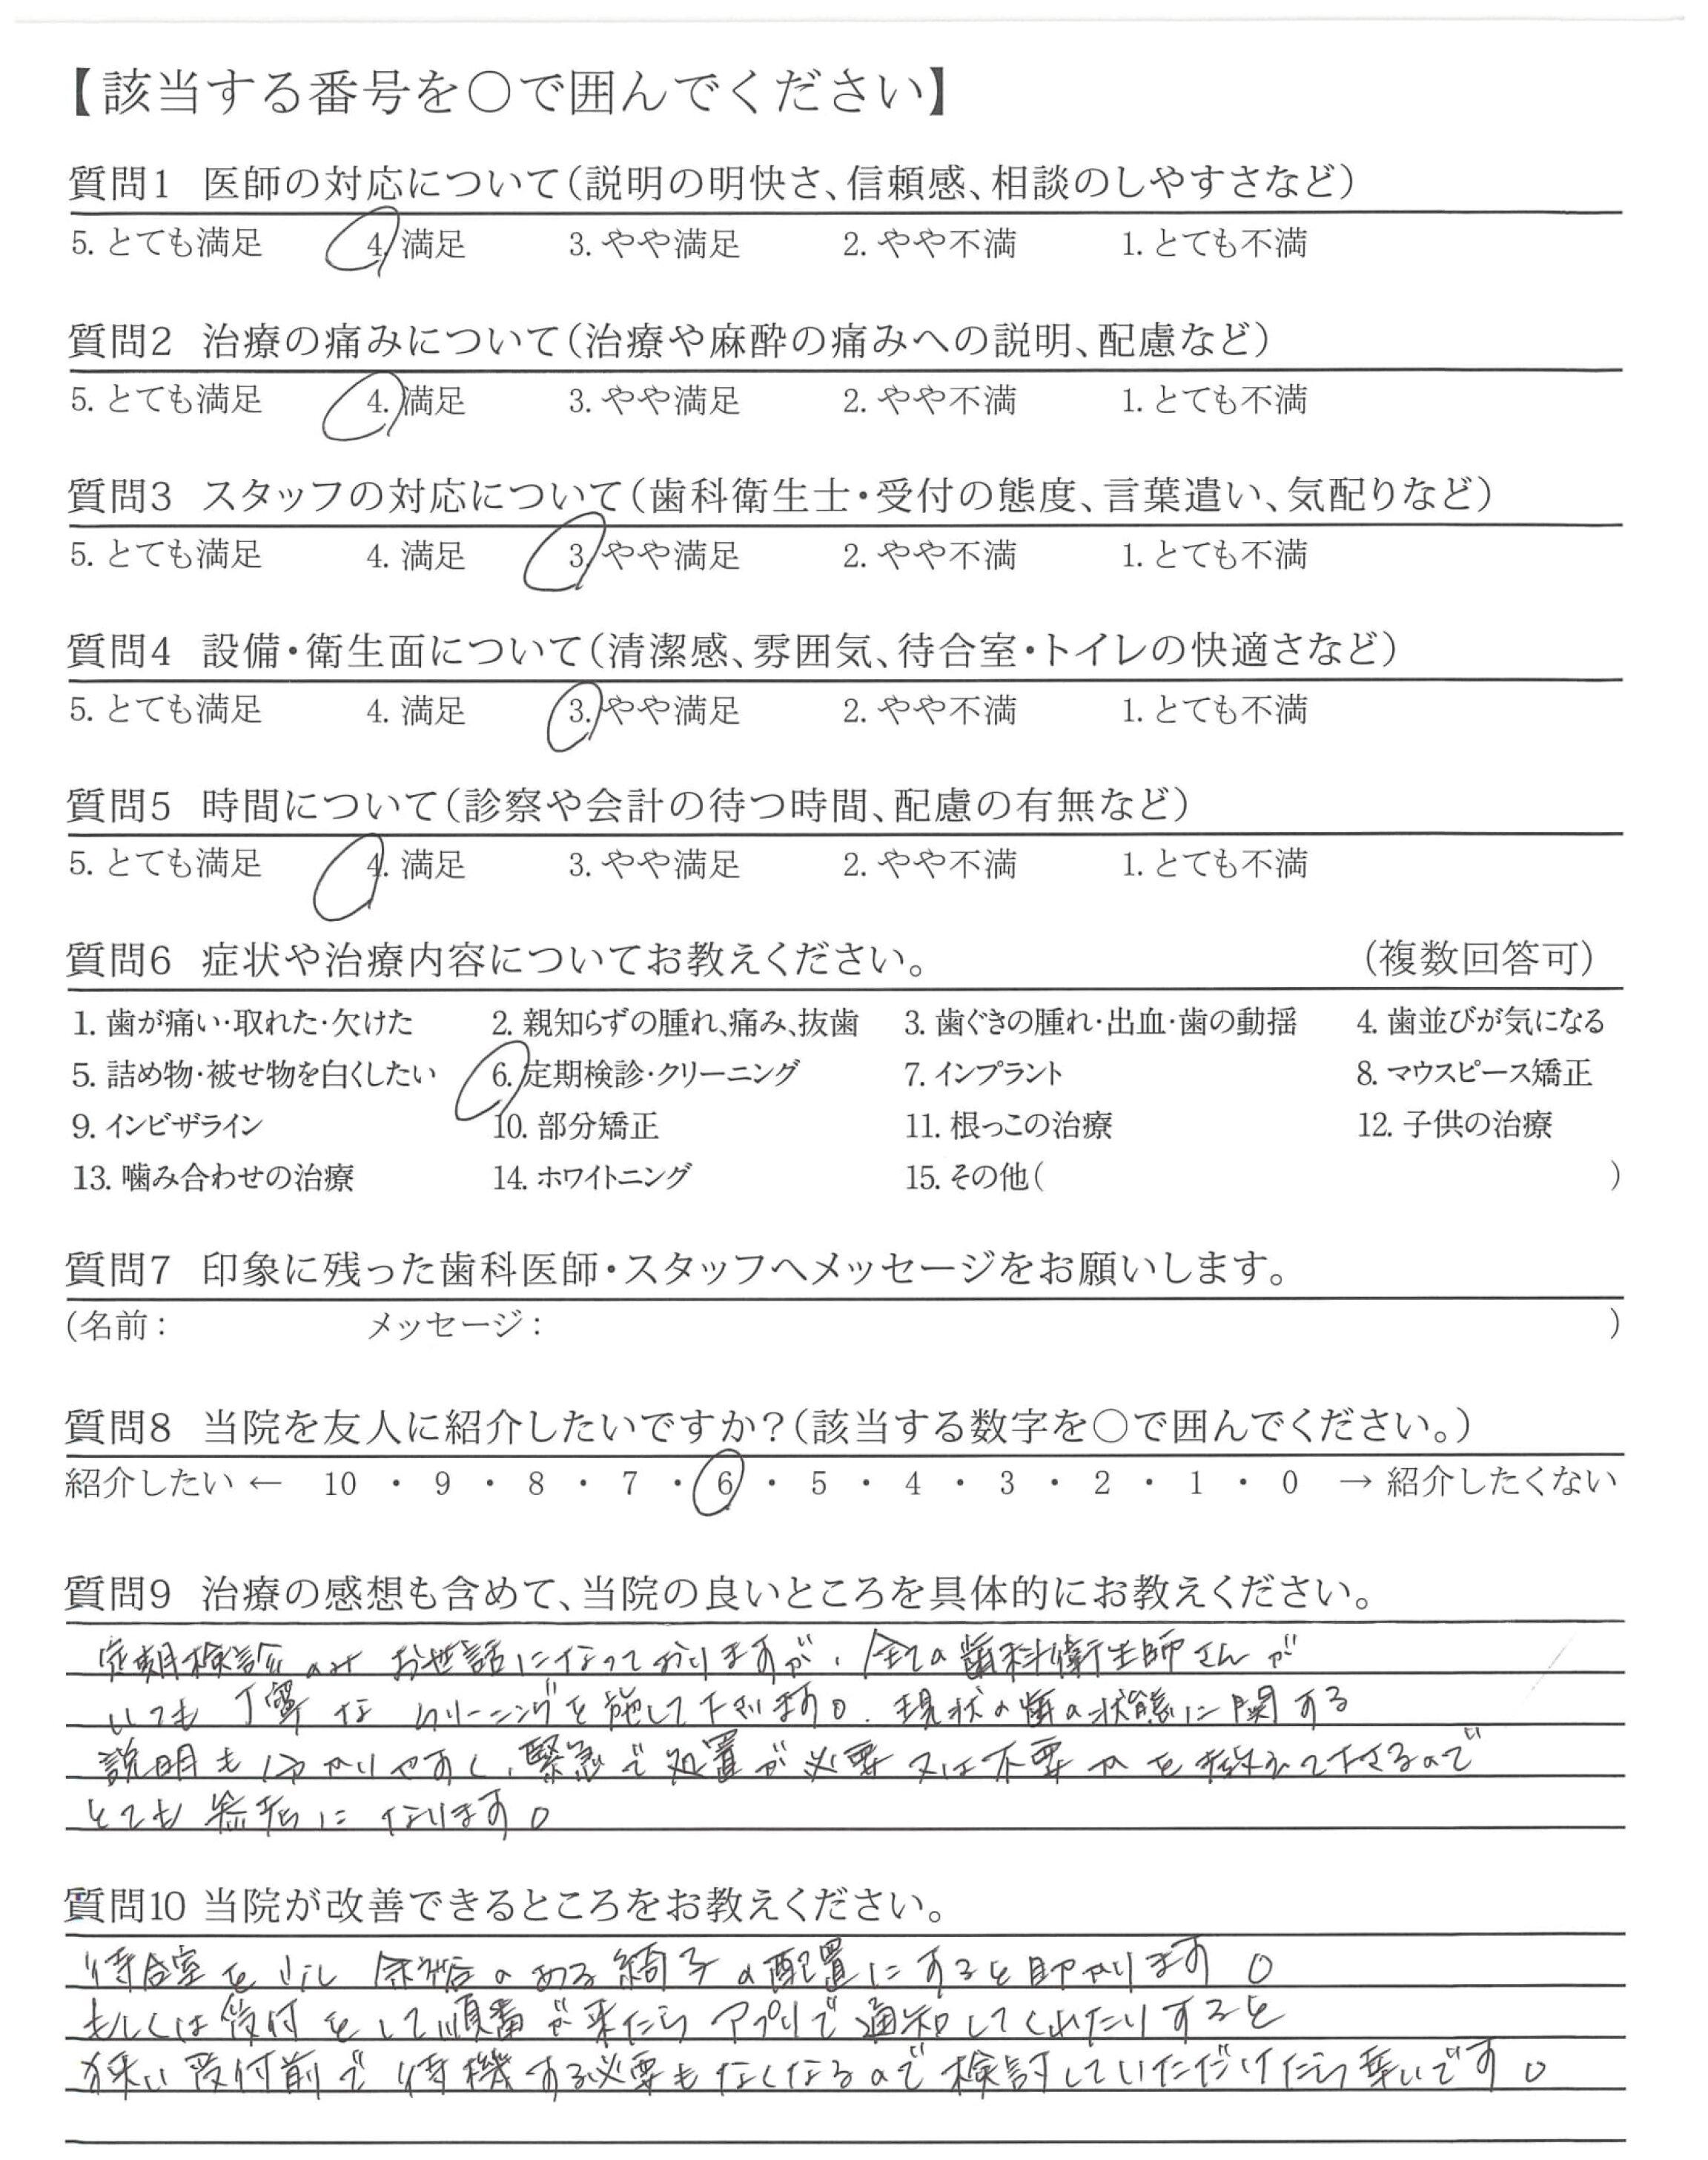 【該当する番号を○で囲んでください】
質問1 医師の対応について(説明の明快さ、信頼感、相談のしやすさなど)
5. とても満足 4. 満足 3. やや満足 2. やや不満 1. とても不満
質問2 治療の痛みについて(治療や麻酔の痛みへの説明、配慮など)
5. とても満足 4. 満足 3. やや満足 2. やや不満 1. とても不満
質問3 スタッフの対応について(歯科衛生士・受付の態度、言葉遣い、気配りなど)
5. とても満足 4. 満足 3. やや満足 2. やや不満 1. とても不満
質問4 設備・衛生面について(清潔感、雰囲気、待合室・トイレの快適さなど)
5. とても満足 4. 満足 3. やや満足 2. やや不満 1. とても不満
質問5 時間について(診察や会計の待つ時間、配慮の有無など)
5. とても満足 4. 満足 3. やや満足 2. やや不満 1. とても不満
質問6 症状や治療内容についてお教えください。 (複数回答可)
1. 歯が痛い・取れた・欠けた 2. 親知らずの腫れ、痛み、抜歯 3. 歯ぐきの腫れ・出血・歯の動揺 4. 歯並びが気になる
5. 詰め物・被せ物を白くしたい 6. 定期検診・クリーニング 7. インプラント 8. マウスピース矯正
9. インビザライン 10. 部分矯正 11. 根っこの治療 12. 子供の治療
13. 噛み合わせの治療 14. ホワイトニング 15. その他( )
質問7 印象に残った歯科医師・スタッフへメッセージをお願いします。
(名前: メッセージ: )
質問8 当院を友人に紹介したいですか?(該当する数字を○で囲んでください。)
紹介したい ← 10 ・ 9 ・ 8 ・ 7 ・ 6 ・ 5 ・ 4 ・ 3 ・ 2 ・ 1 ・ 0 → 紹介したくない
質問9 治療の感想も含めて、当院の良いところを具体的にお教えください。
定期検診のみ お世話になっておりますが、全ての歯科衛生師さんが
いつも 丁寧な クリーニングを施して下さいます。現状の歯の状態に関する
説明も分かりやすく、緊急で処置が必要又は不要かを教えて下さるので
とても参考になります。
質問10 当院が改善できるところをお教えください。
待合室を少し余裕のある椅子の配置にすると助かります。
もしくは受付をして順番が来たらアプリで通知してくれたりすると
狭い受付前で待機する必要もなくなるので検討していただけたら幸いです。